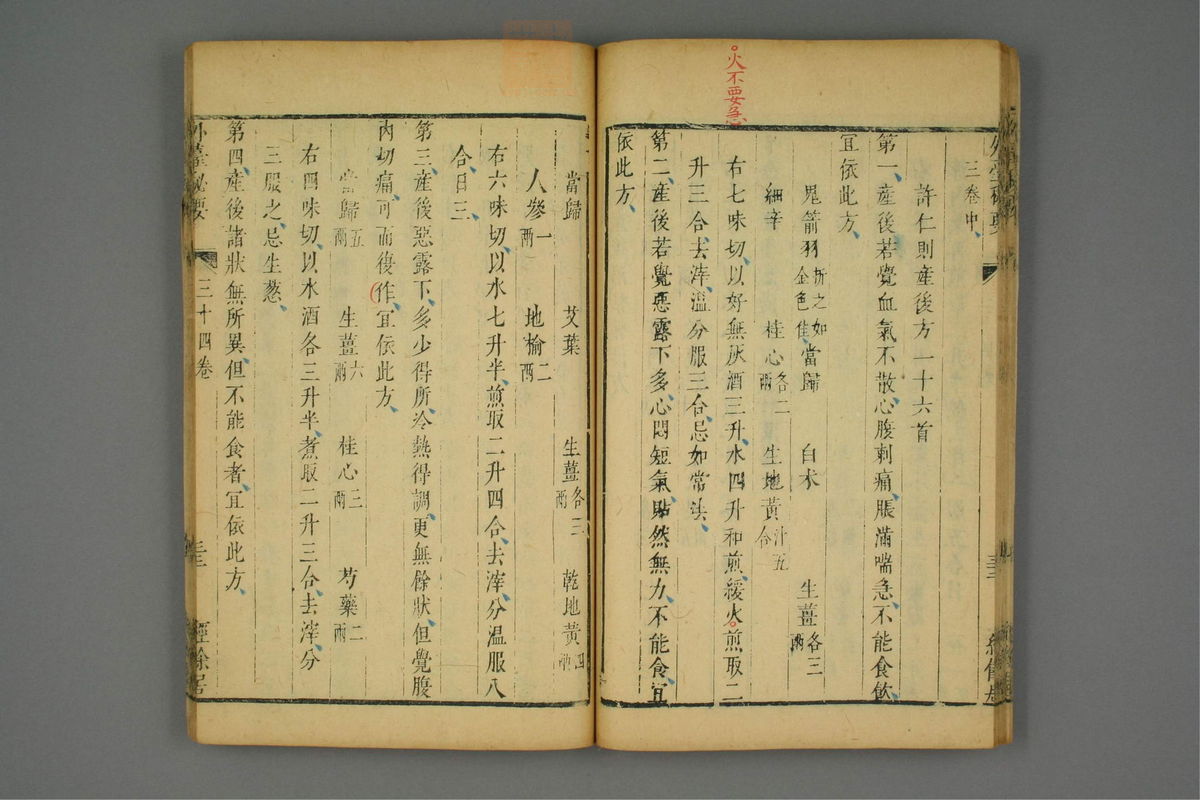 火不要急
三卷中
許仁則產後方一十六首
第一產後若覺血氣不散心腹刺痛脹滿喘急不能食飲
宜依此方
鬼箭羽折之如金色佳 當歸 白朮 生薑各三兩
細辛 桂心各二兩 生地黃汁五合
右七味切以好無灰酒三升水四升和煎緩火煎取二
升三合去滓溫分服三合忌如常法
第二產後若覺惡露下多心悶短氣貼然無力不能食宜
依此方
當歸 艾葉 生薑各三兩 乾地黃四兩
人參一兩 地榆二兩
右六味切以水七升半煎取二升四合去滓分溫服八
合日三
第三產後惡露下多少得所冷熱得調更無餘狀但覺腹
內切痛可而復作宜依此方
當歸五兩 生薑六兩 桂心三兩 芍藥二兩
右四味切以水酒各三升半煮取二升三合去滓分
三服之忌生葱
第四產後諸狀無所異但不能食者宜依此方
外臺秘要 三十四卷 經餘居